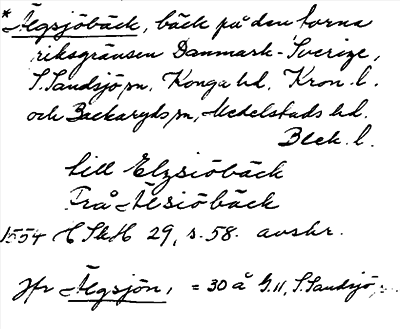 *Älgsjöbäck, bäck på den forna
riksgränsen Danmark-Sverige,
S. Sandsjö sn, Konga hd, Kron. l.
och Backaryds sn, Medelstads hd.
Blek. l.
till Elzsiöbäck
Frå Älsiöbäck
1554 C Sk H 29, s. 58. avskr.
Jfr Älgsjön, = 30 å G. 11, S. Sandsjö